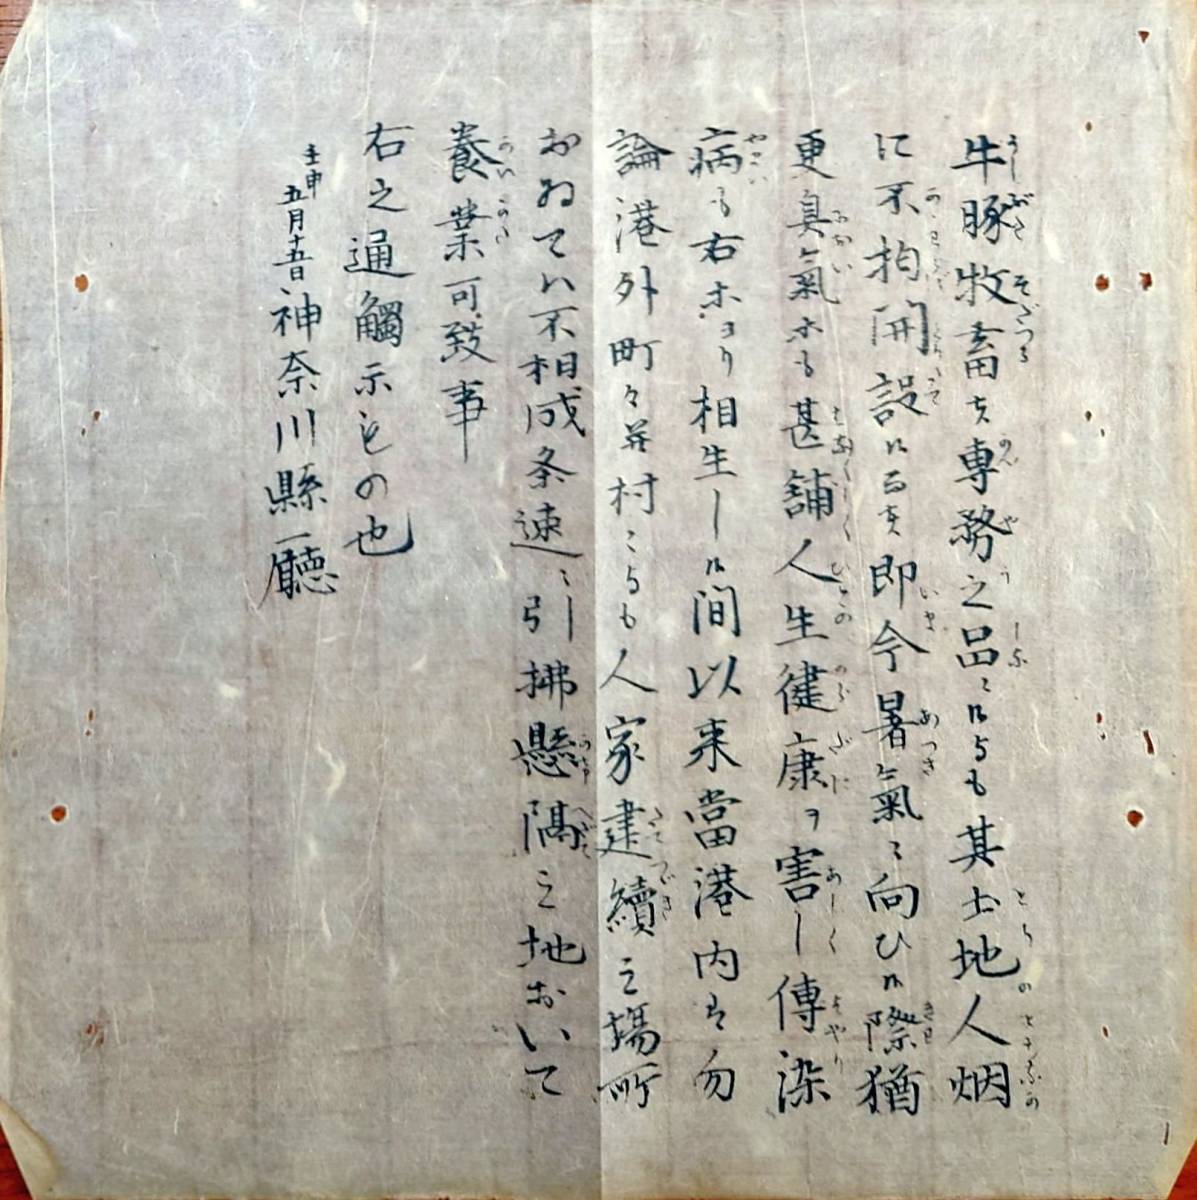 牛豚牧畜ハ専務之品ニ候得とも其土地人烟
に不拘開設候而ハ即今暑氣ニ向ひ候際猶
更臭氣等も甚舗人生健康ヲ害し傳染
病も右等ヨリ相生し候間以来當港内ハ勿
論港外町々并村ニても人家建續之場所
おゐてハ不相成条速ニ引拂懸隔之地おいて
養業可致事
右之通觸示もの也
壬申五月十五日神奈川縣廳